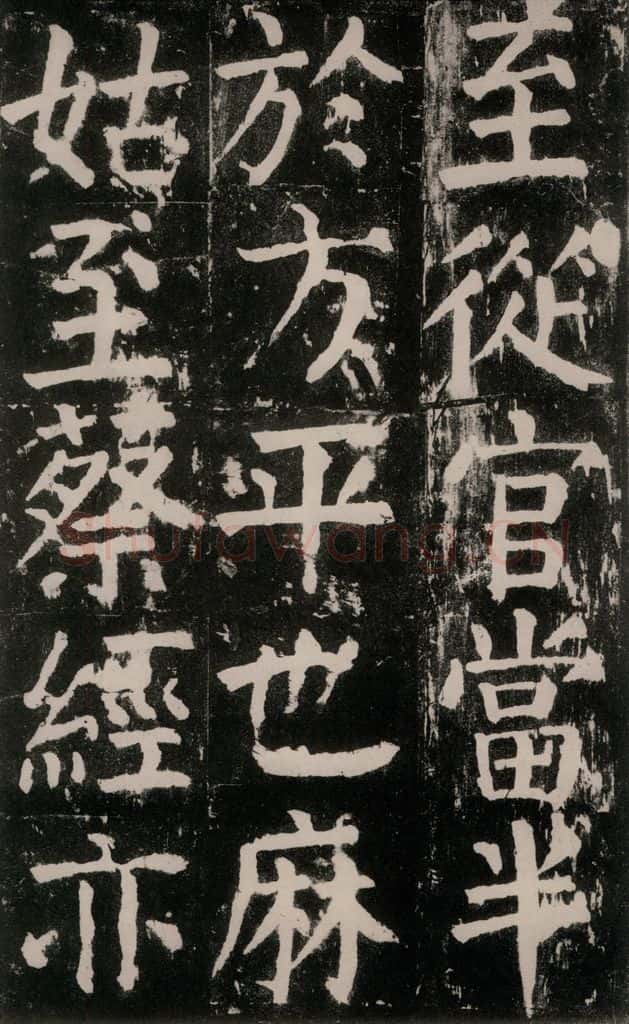 至從官當半
於方平世麻
姑至蔡經亦
Shufawang.CN